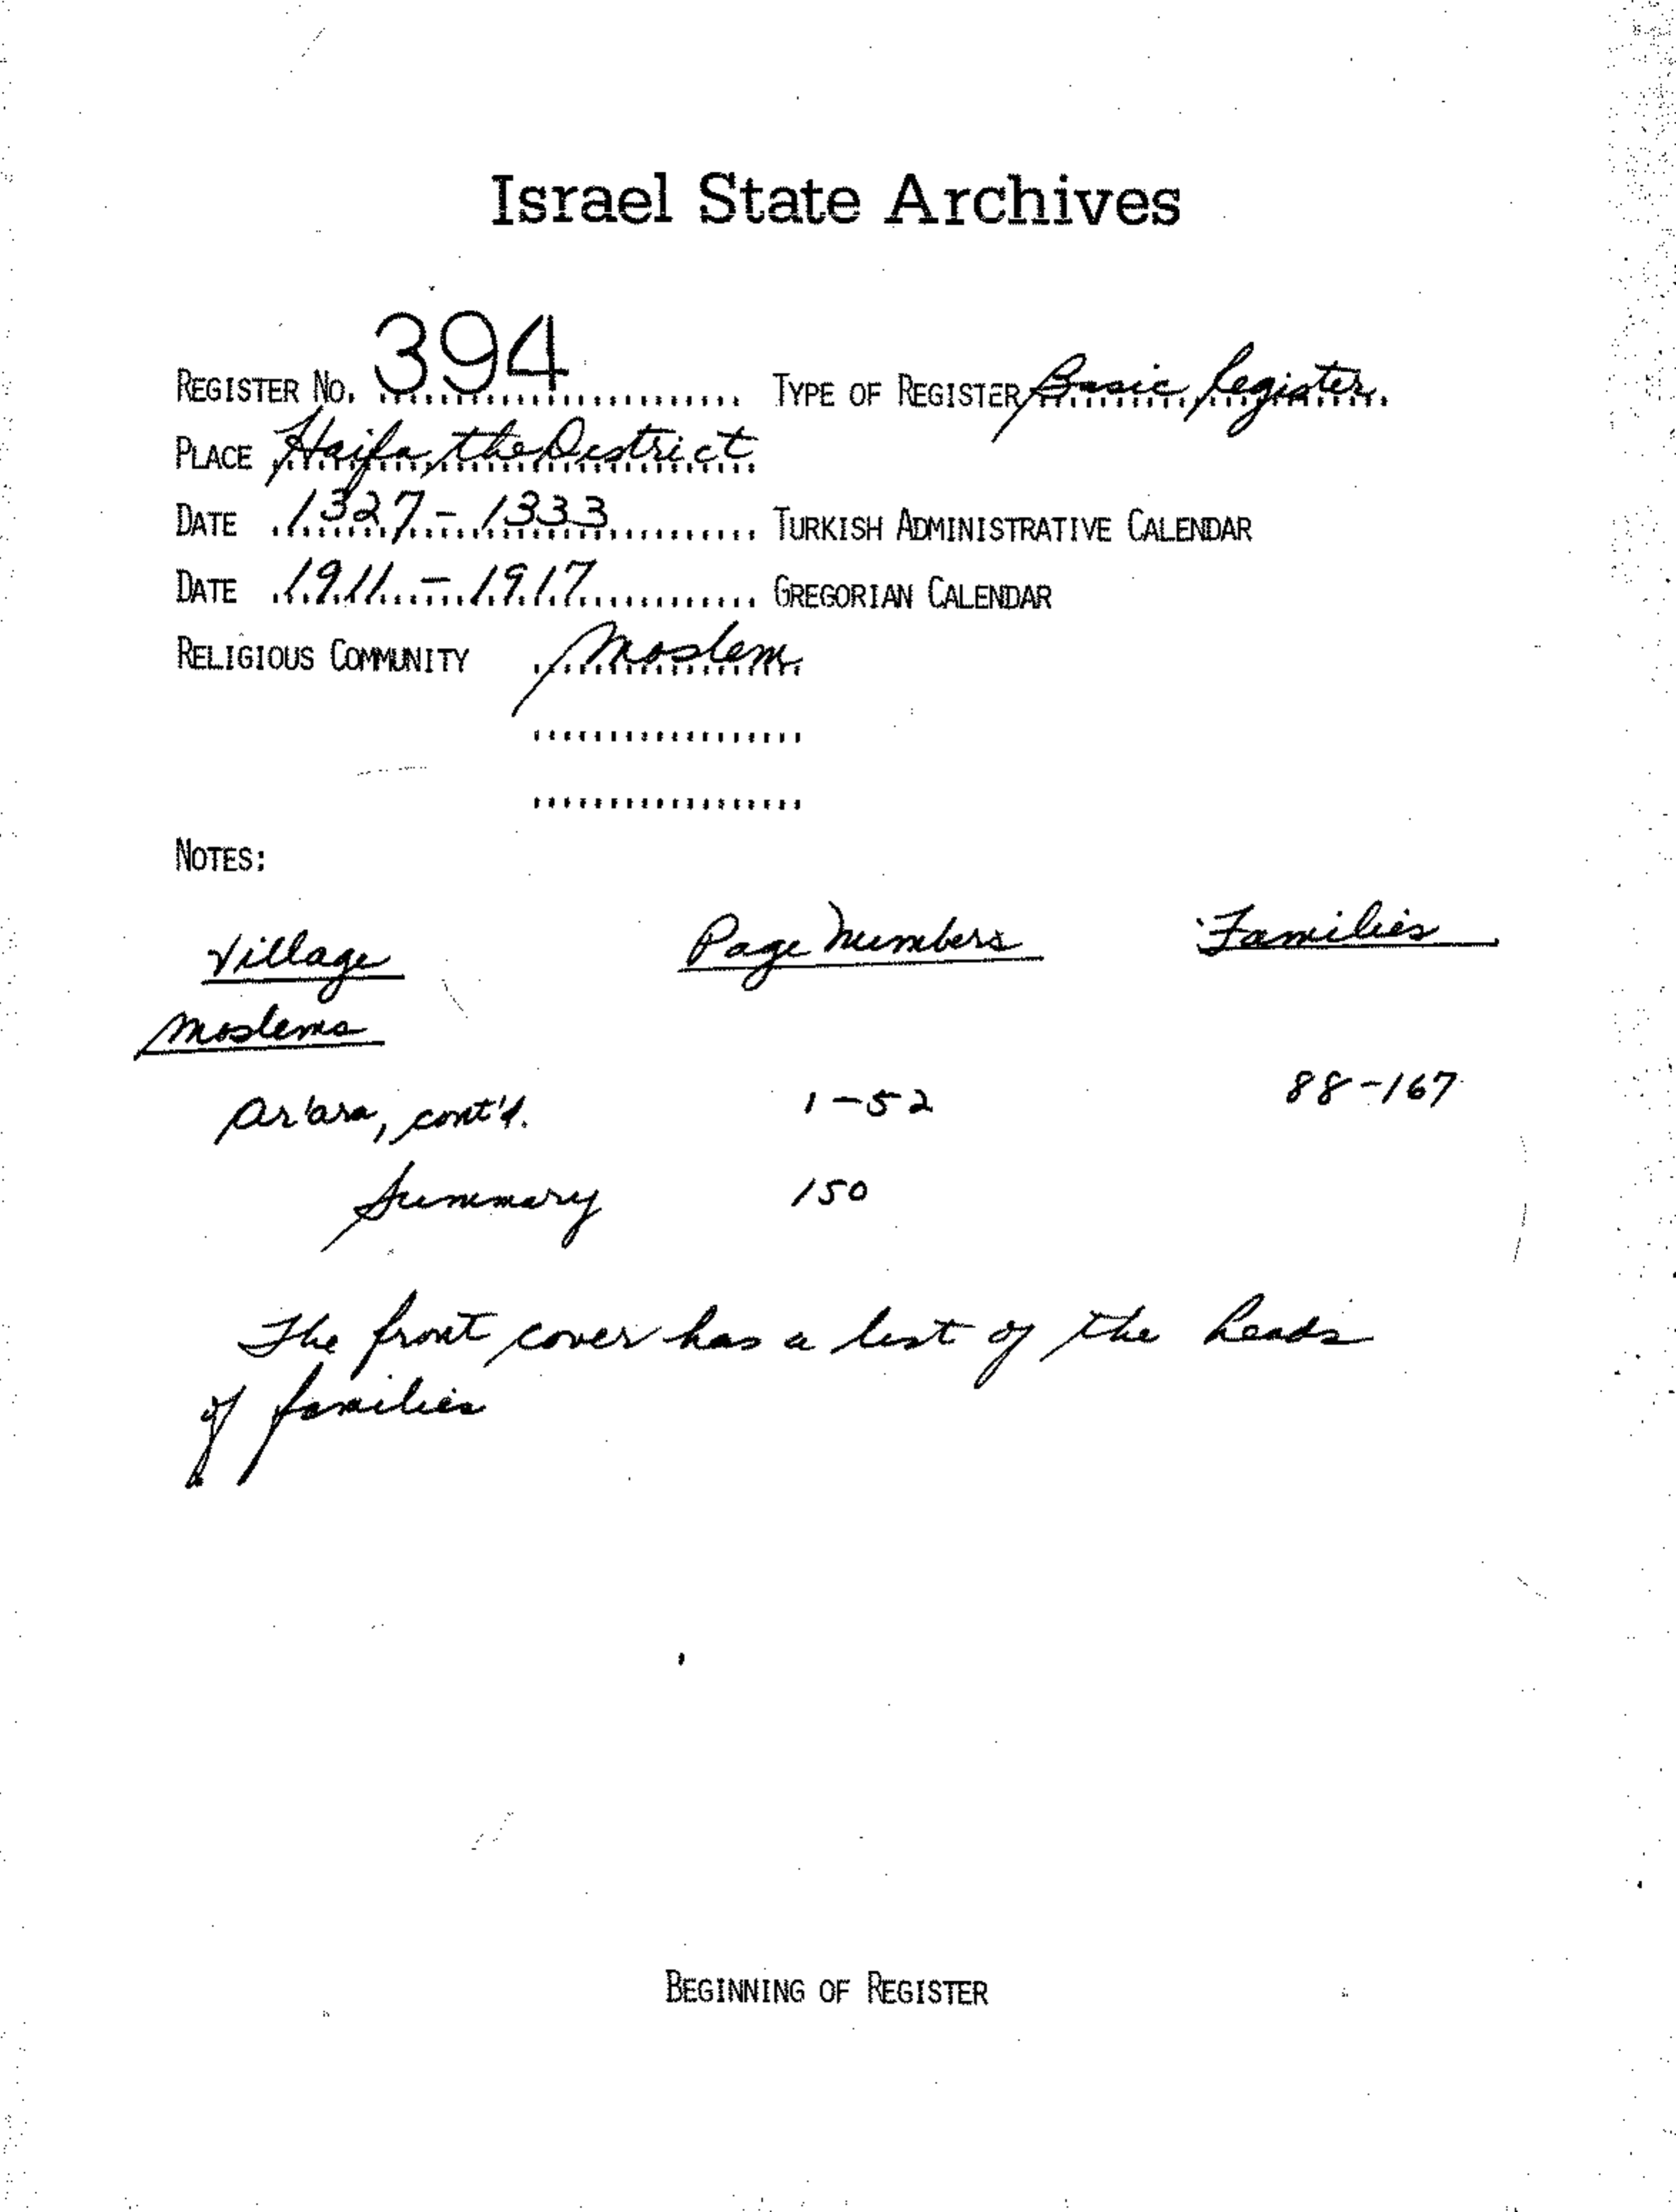 Israel State Archives
REGISTER NO. 394 TYPE OF REGISTER Basic Register
PLACE Haifa, the District
DATE 1327-1333 TURKISH ADMINISTRATIVE CALENDAR
DATE 1911-1917 GREGORIAN CALENDAR
RELIGIOUS COMMUNITY Moslem
NOTES:
Village Page Numbers Families
Moslems
Ar'ara, cont'd. 1-52 88-167
Summary 150
The front cover has a list of the heads
of families
BEGINNING OF REGISTER